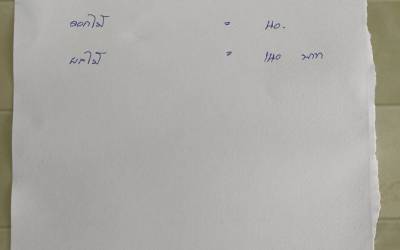 ดอกไม้ = 40.
ผลไม้ = 140 บาท